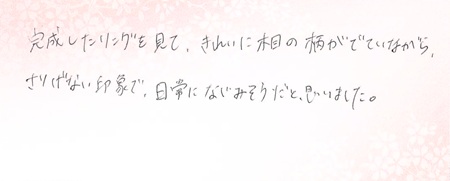 完成したリングを見て、きれいに木目の柄がでていながら、
さりげない印象で、日常になじみそうだと、思いました。